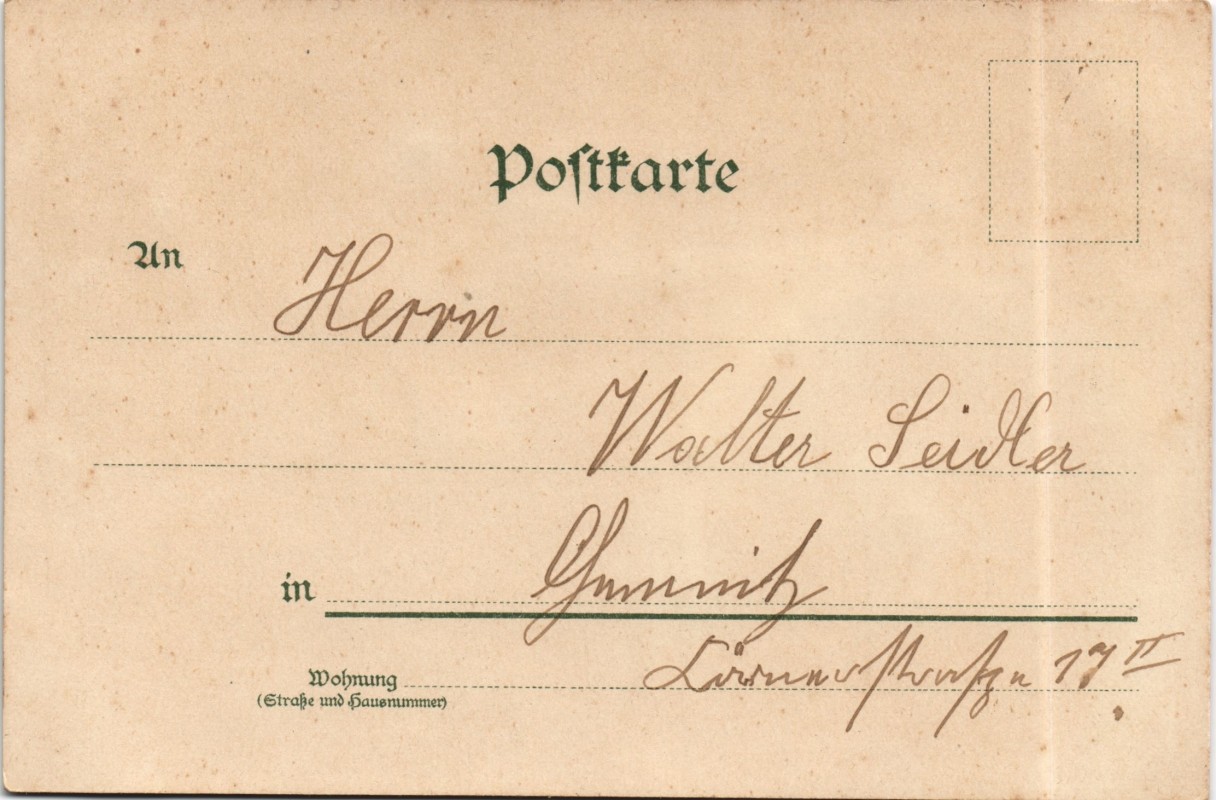 Postkarte
An
Herrn
Walter Seidler
in Chemnitz
Wohnung Körnerstraße 17 II
(Straße und Hausnummer)